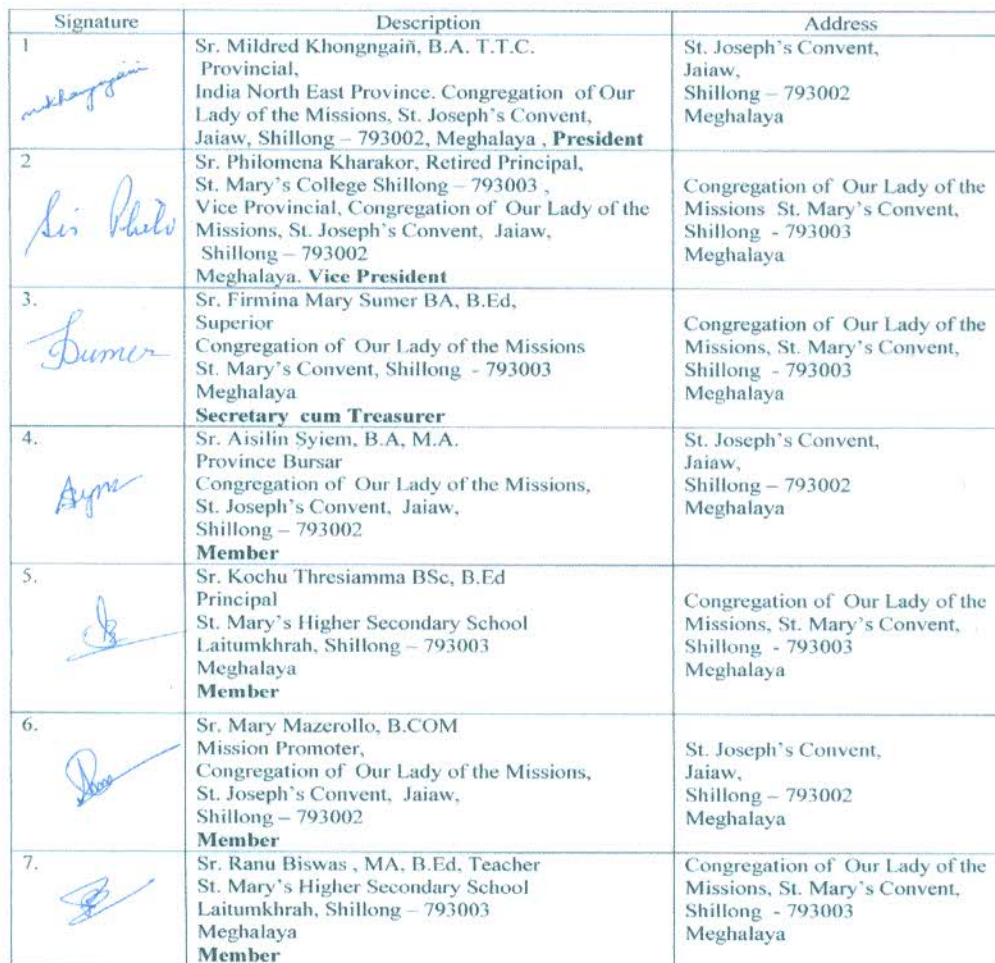 Signature Description Address
1
mkhongngain
Sr. Mildred Khongngaiñ, B.A. T.T.C.
Provincial,
India North East Province. Congregation of Our
Lady of the Missions, St. Joseph's Convent,
Jaiaw, Shillong – 793002, Meghalaya , President
St. Joseph's Convent,
Jaiaw,
Shillong – 793002
Meghalaya
2
Sis Philo
Sr. Philomena Kharakor, Retired Principal,
St. Mary's College Shillong – 793003 ,
Vice Provincial, Congregation of Our Lady of the
Missions, St. Joseph's Convent, Jaiaw,
Shillong – 793002
Meghalaya. Vice President
Congregation of Our Lady of the
Missions St. Mary's Convent,
Shillong - 793003
Meghalaya
3.
Sumer
Sr. Firmina Mary Sumer BA, B.Ed,
Superior
Congregation of Our Lady of the Missions
St. Mary's Convent, Shillong - 793003
Meghalaya
Secretary cum Treasurer
Congregation of Our Lady of the
Missions, St. Mary's Convent,
Shillong - 793003
Meghalaya
4.
Sr. Aisilin Syiem, B.A, M.A.
Province Bursar
Congregation of Our Lady of the Missions,
St. Joseph's Convent, Jaiaw,
Shillong – 793002
Member
St. Joseph's Convent,
Jaiaw,
Shillong – 793002
Meghalaya
5.
Sr. Kochu Thresiamma BSc, B.Ed
Principal
St. Mary's Higher Secondary School
Laitumkhrah, Shillong – 793003
Meghalaya
Member
Congregation of Our Lady of the
Missions, St. Mary's Convent,
Shillong - 793003
Meghalaya
6.
Sr. Mary Mazerollo, B.COM
Mission Promoter,
Congregation of Our Lady of the Missions,
St. Joseph's Convent, Jaiaw,
Shillong – 793002
Member
St. Joseph's Convent,
Jaiaw,
Shillong – 793002
Meghalaya
7.
Sr. Ranu Biswas , MA, B.Ed, Teacher
St. Mary's Higher Secondary School
Laitumkhrah, Shillong – 793003
Meghalaya
Member
Congregation of Our Lady of the
Missions, St. Mary's Convent,
Shillong - 793003
Meghalaya